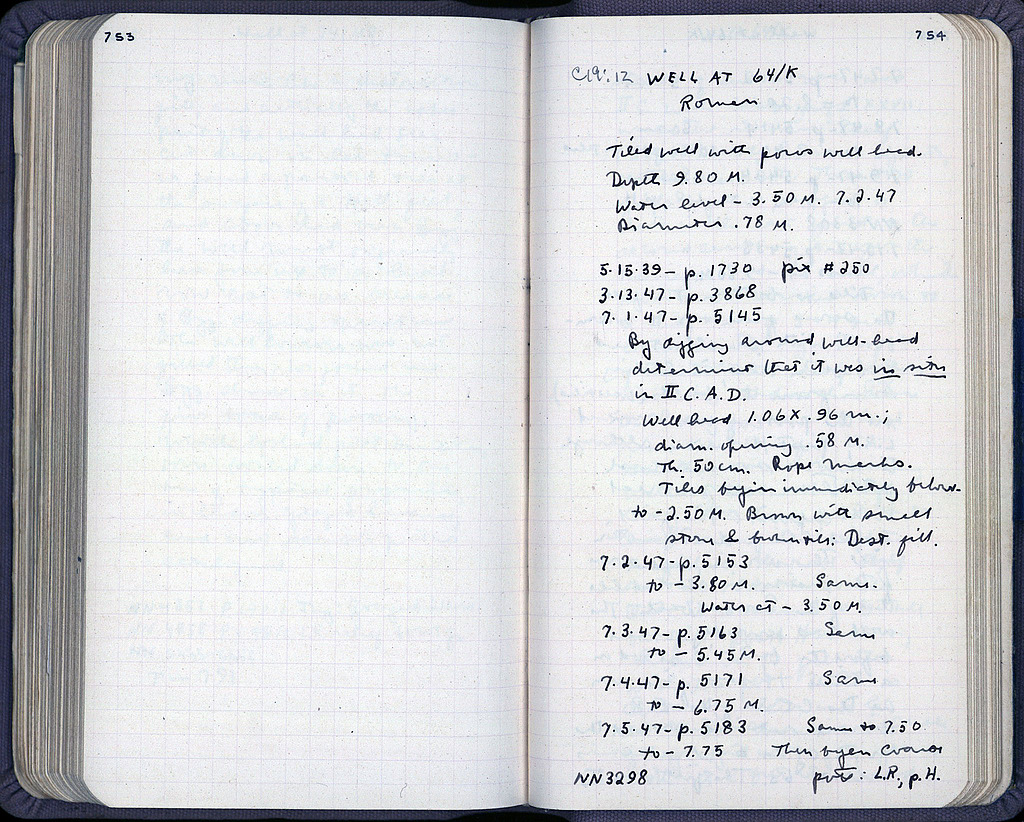 753
754
C19:12 WELL AT 64/K
Roman
Tiled well with poros well head.
Depth 9.80 M.
Water level - 3.50 M. 7.2.47
Diameter .78 M.
5.15.39 - p. 1730 pix #250
3.13.47 - p. 3868
7.1.47 - p. 5145
By digging around well-head
determined that it was in situ
in II C. A.D.
Well head 1.06 X .96 m.;
diam. opening .58 M.
Th. 50 cm. Rope marks.
Tiles begin immediately below.
to -2.50 M. Brown with small
stone & broken tile: Dest. fill.
7.2.47 - p. 5153
to - 3.80 M. Same.
Water at - 3.50 M.
7.3.47 - p. 5163 Same
to - 5.45 M.
7.4.47 - p. 5171 Same
to - 6.75 M.
7.5.47 - p. 5183 Same to 7.50
to - 7.75 Then began coarse
NN3298 pots: L.R., p.H.